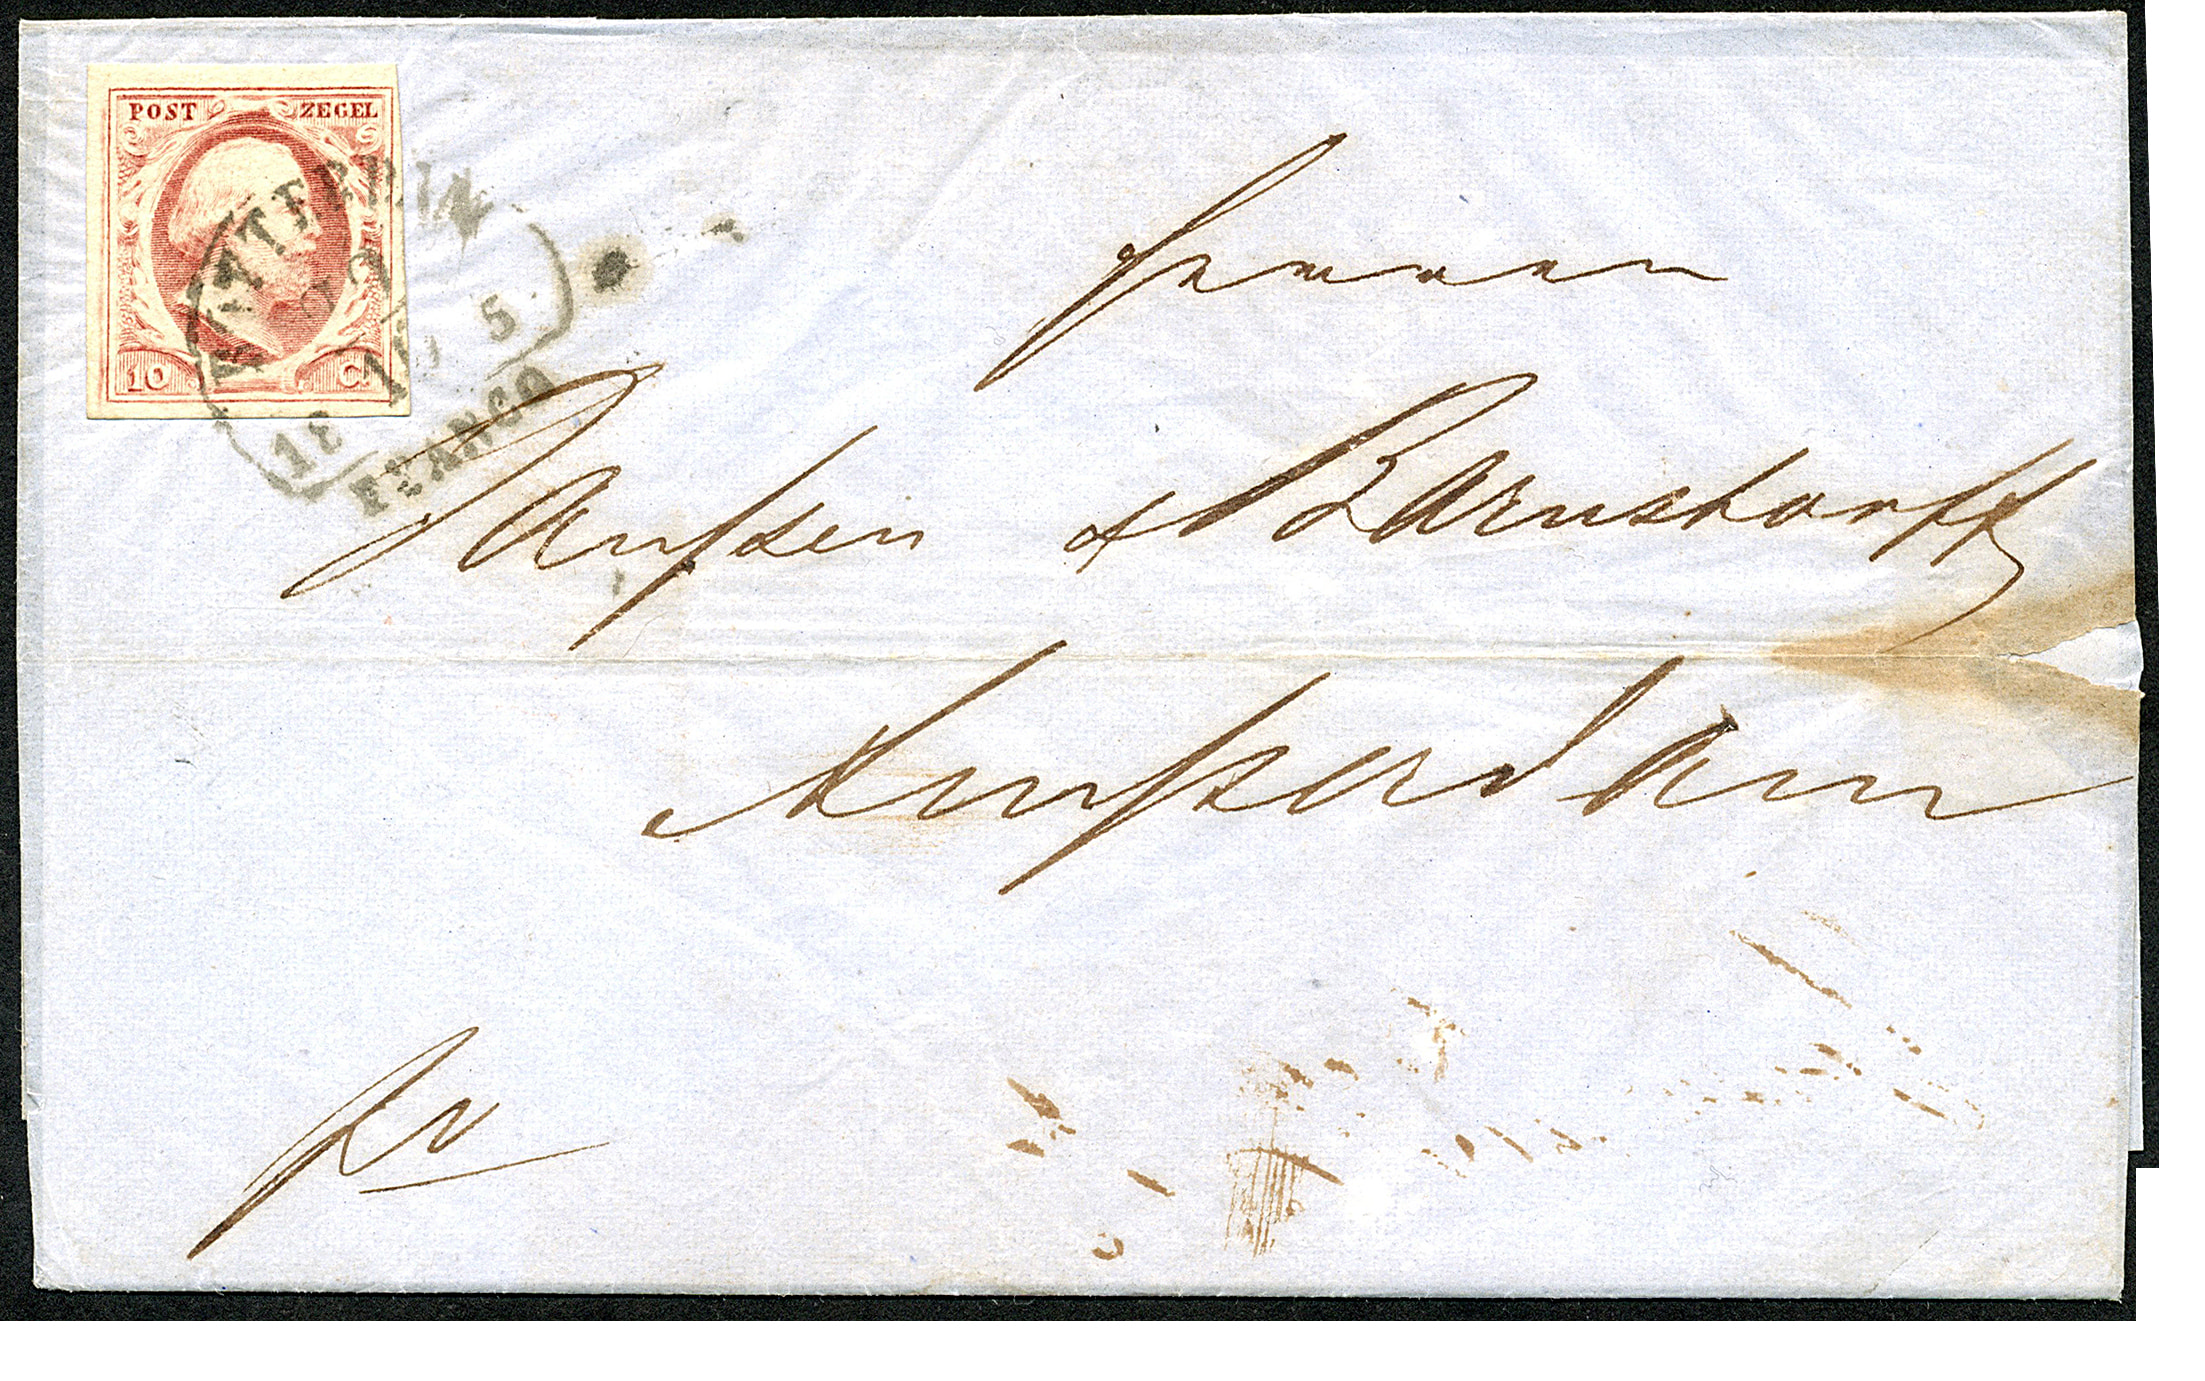 POST ZEGEL
10 C.
FRANCO
Herren
Janssen & Barnstorff
Amsterdam